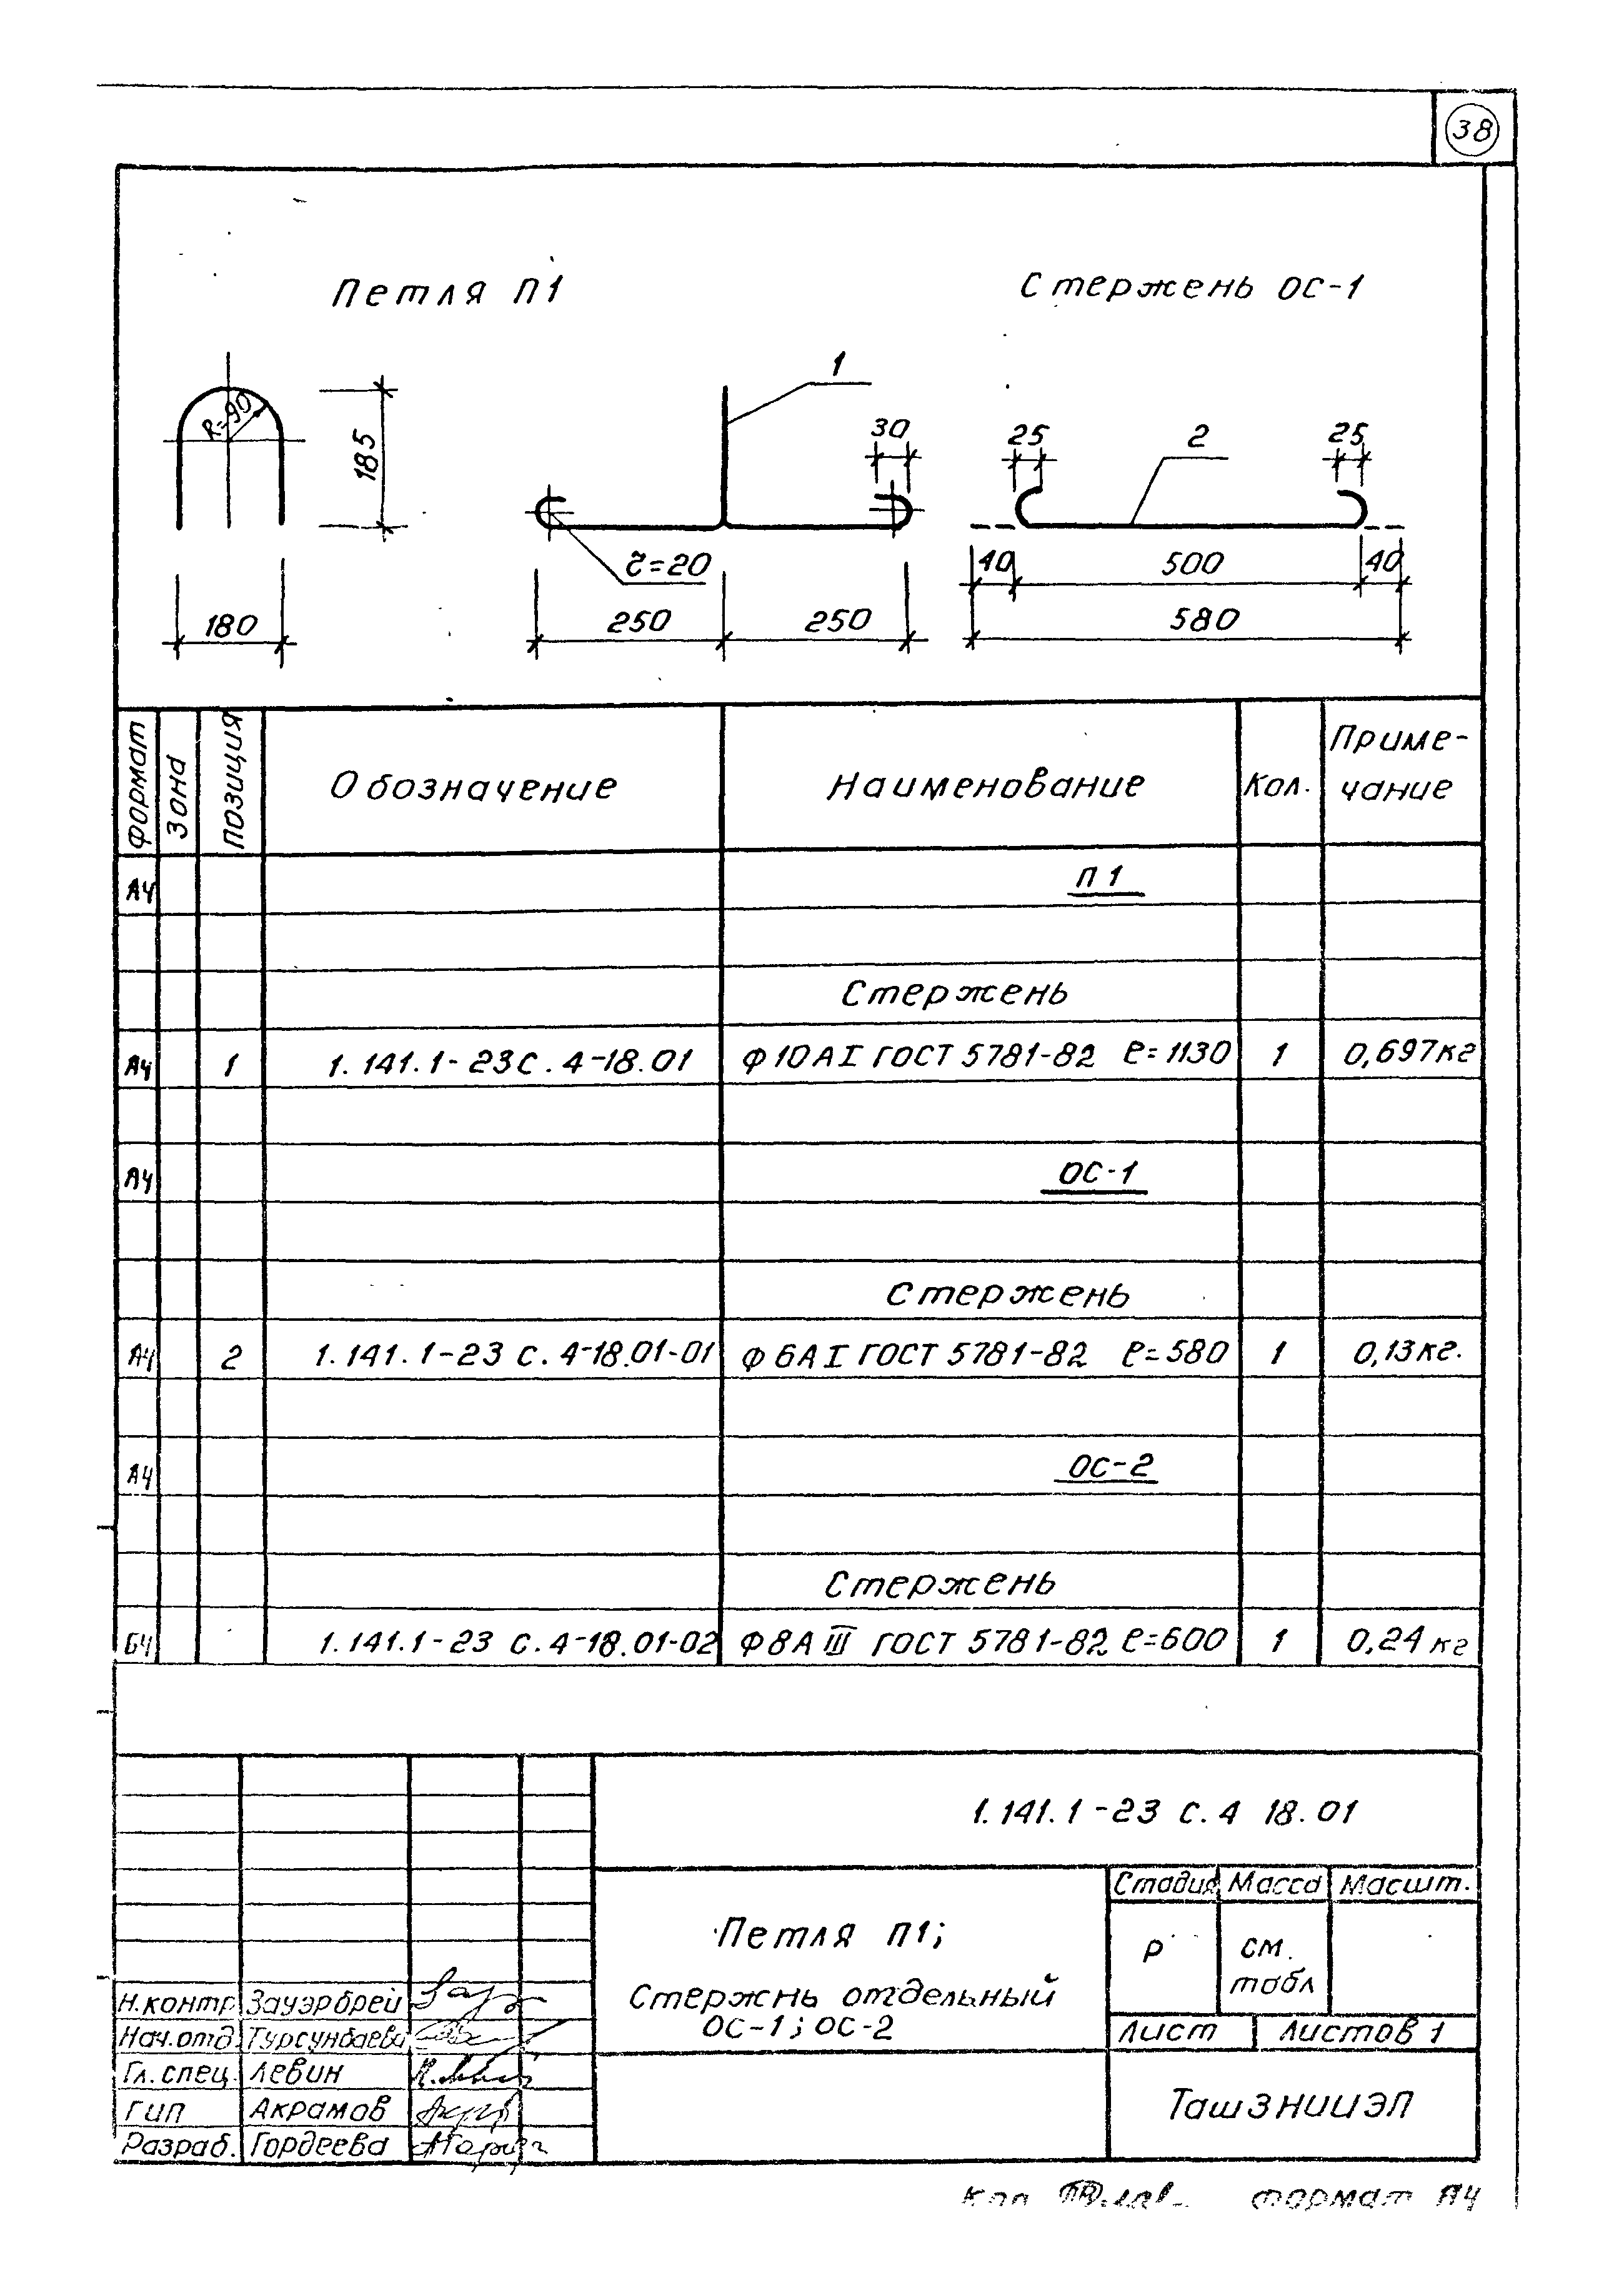 38
Петля П1
Стержень ОС-1
R=90
185
180
1
30
r=20
250
250
25
2
25
40
500
40
580
Формат
Зона
Позиция
Обозначение
Наименование
Кол.
Приме-
чание
А4
П1
Стержень
А4 1 1.141.1-23с.4-18.01 Ф10АI ГОСТ 5781-82 ℓ=1130 1 0,697кг
А4
ОС-1
Стержень
А4 2 1.141.1-23 с.4-18.01-01 Ф6АI ГОСТ 5781-82 ℓ=580 1 0,13кг.
А4
ОС-2
Стержень
Б4 1.141.1-23 с.4-18.01-02 Ф8АIII ГОСТ 5781-82 ℓ=600 1 0,24кг
1.141.1-23 с.4 18.01
Петля П1;
Стержнь отдельный
ОС-1; ОС-2
Стадия Масса Масшт.
Р
см.
табл
Лист
Листов 1
ТашЗНИИЭП
Н.контр Зауэрбрей
Нач.отд. Турсунбаева
Гл.спец. Левин
ГИП Акрамов
Разраб. Гордеева
Коп
Формат А4